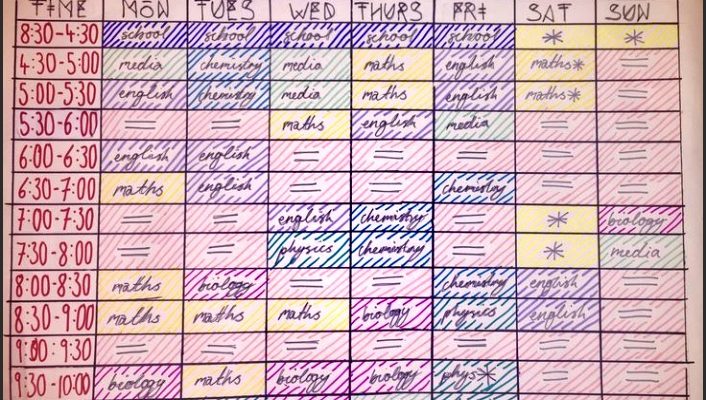 TIME MON TUES WED THURS FRI SAT SUN
8:30-4:30 school school school school school * *
4:30-5:00 media chemistry media maths english maths* =
5:00-5:30 english chemistry media maths english maths* =
5:30-6:00 = = maths english media = =
6:00-6:30 english english = = = = =
6:30-7:00 maths english = = chemistry = =
7:00-7:30 = = english chemistry = * biology
7:30-8:00 = = physics chemistry = * media
8:00-8:30 maths biology = = chemistry english =
8:30-9:00 maths maths maths biology physics english =
9:00:9:30 = = = = = = =
9:30-10:00 biology maths biology biology phys* = =